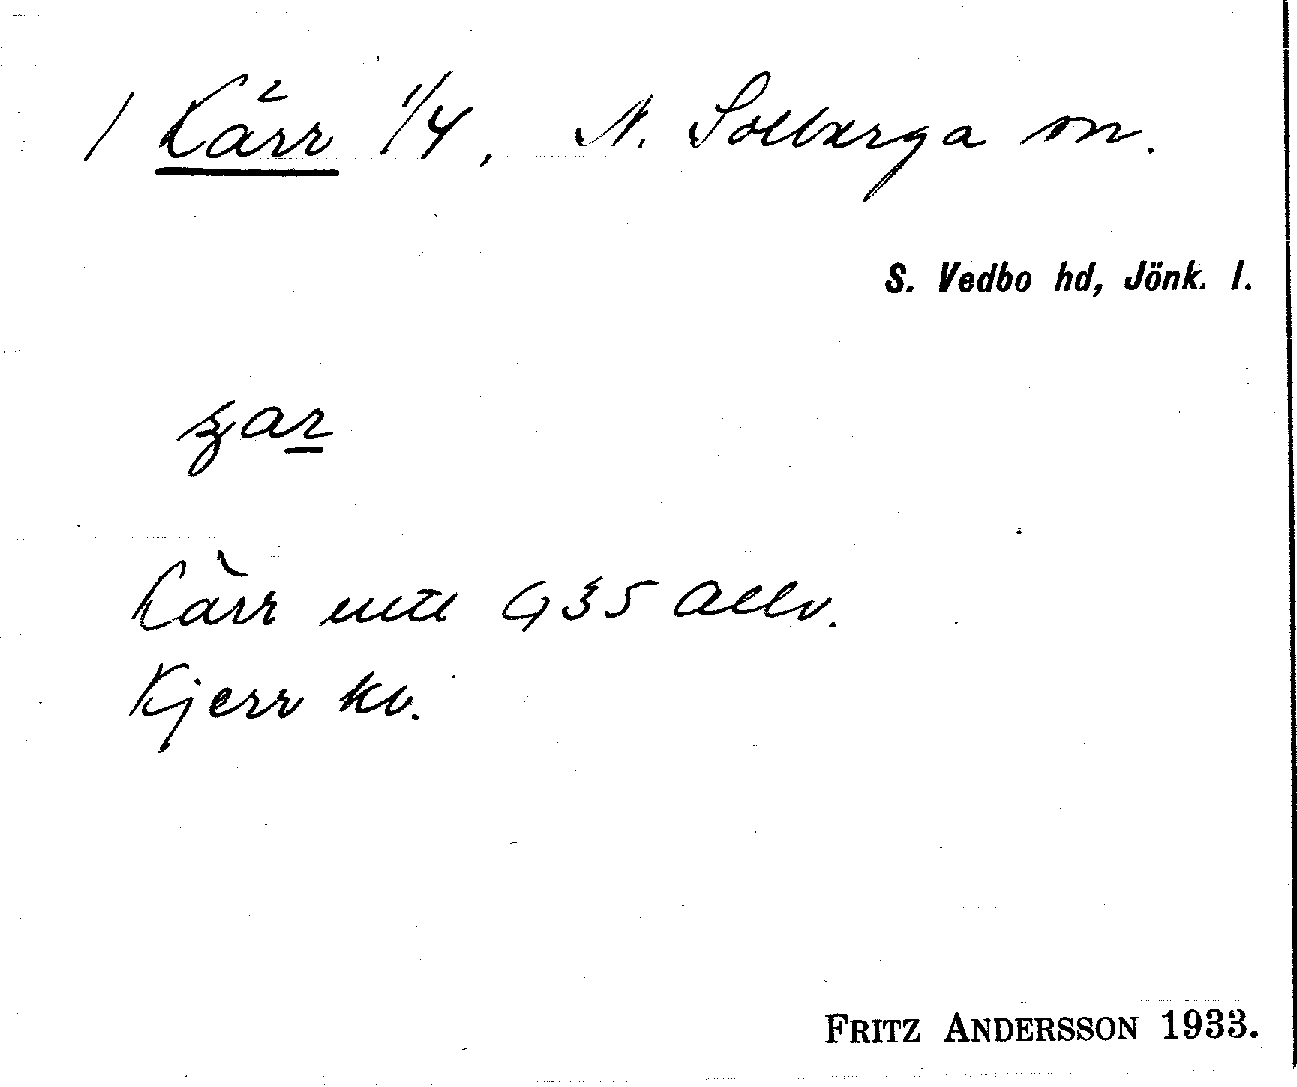 1 Kärr 1/4, N. Solberga sn.
S. Vedbo hd, Jönk. l.
Kärr 435 Allm.
Kjerr kv.
FRITZ ANDERSSON 1933.